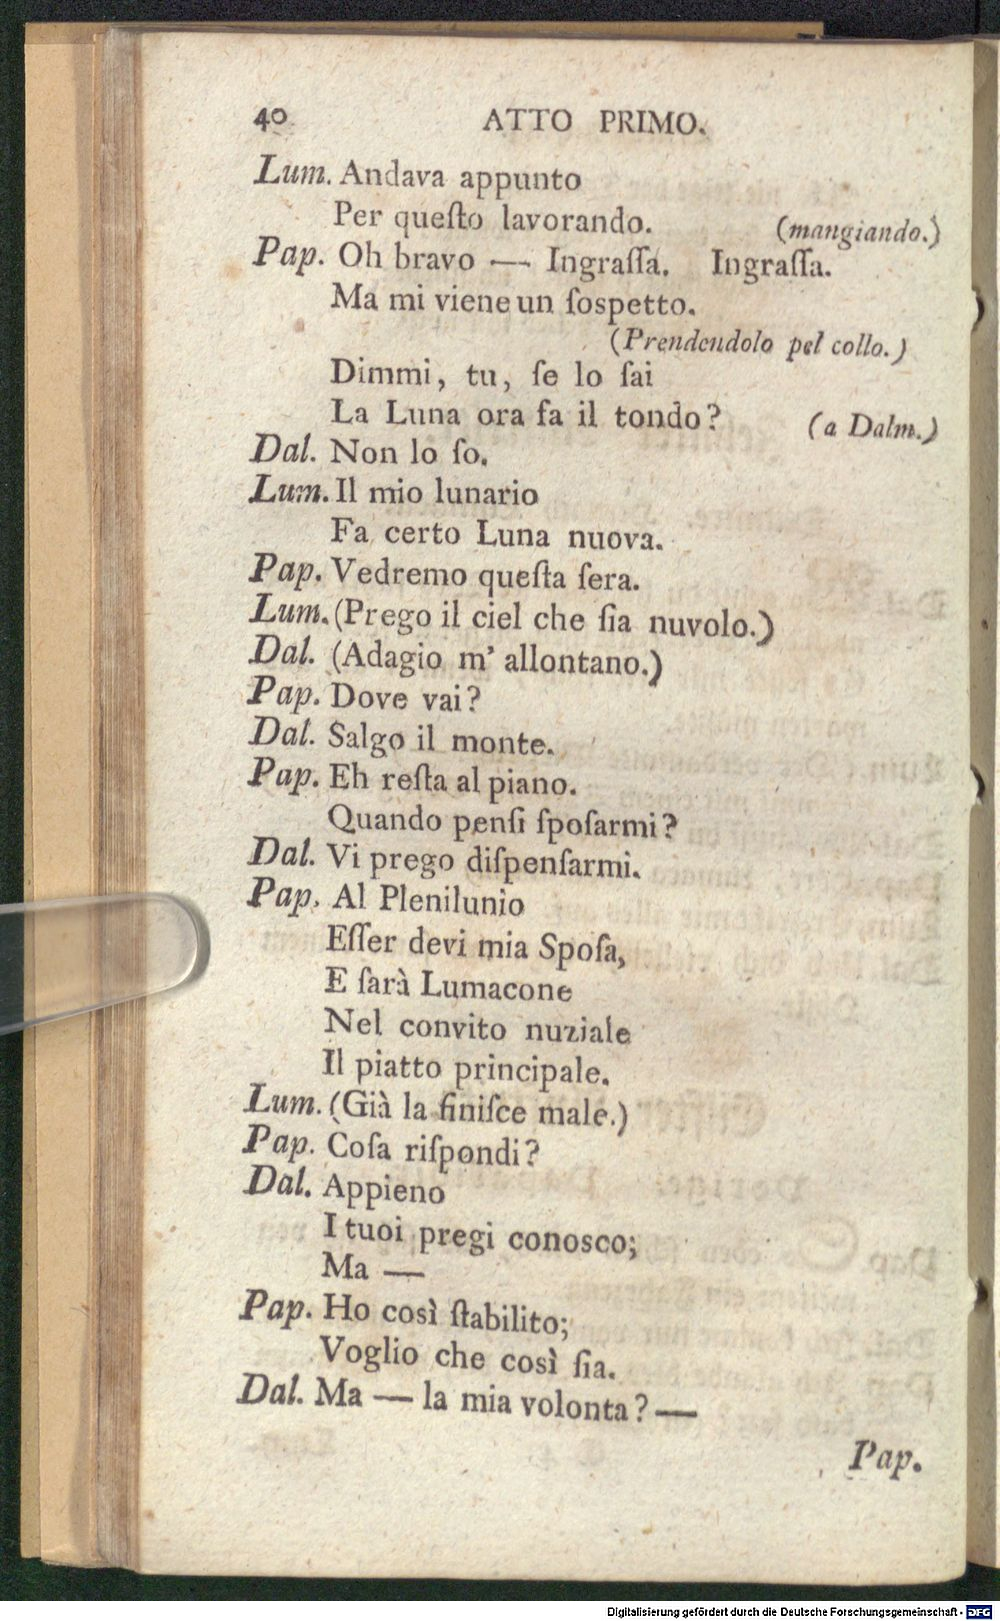 40 ATTO PRIMO.
Lum. Andava appunto
Per queſto lavorando. (mangiando.)
Pap. Oh bravo — Ingraſſa. Ingraſſa.
Ma mi viene un ſospetto.
(Prendendolo pel collo.)
Dimmi, tu, ſe lo ſai
La Luna ora fa il tondo? (a Dalm.)
Dal. Non lo ſo.
Lum. Il mio lunario
Fa certo Luna nuova.
Pap. Vedremo queſta ſera.
Lum. (Prego il ciel che ſia nuvolo.)
Dal. (Adagio m' allontano.)
Pap. Dove vai?
Dal. Salgo il monte.
Pap. Eh reſta al piano.
Quando penſi ſposarmi?
Dal. Vi prego diſpenſarmi.
Pap. Al Plenilunio
Eſſer devi mia Spoſa,
E ſarà Lumacone
Nel convito nuziale
Il piatto principale.
Lum. (Già la finiſce male.)
Pap. Coſa riſpondi?
Dal. Appieno
I tuoi pregi conosco;
Ma —
Pap. Ho così ſtabilito;
Voglio che così ſia.
Dal. Ma — la mia volonta? —
Pap.
Digitalisierung gefördert durch die Deutsche Forschungsgemeinschaft - DFG